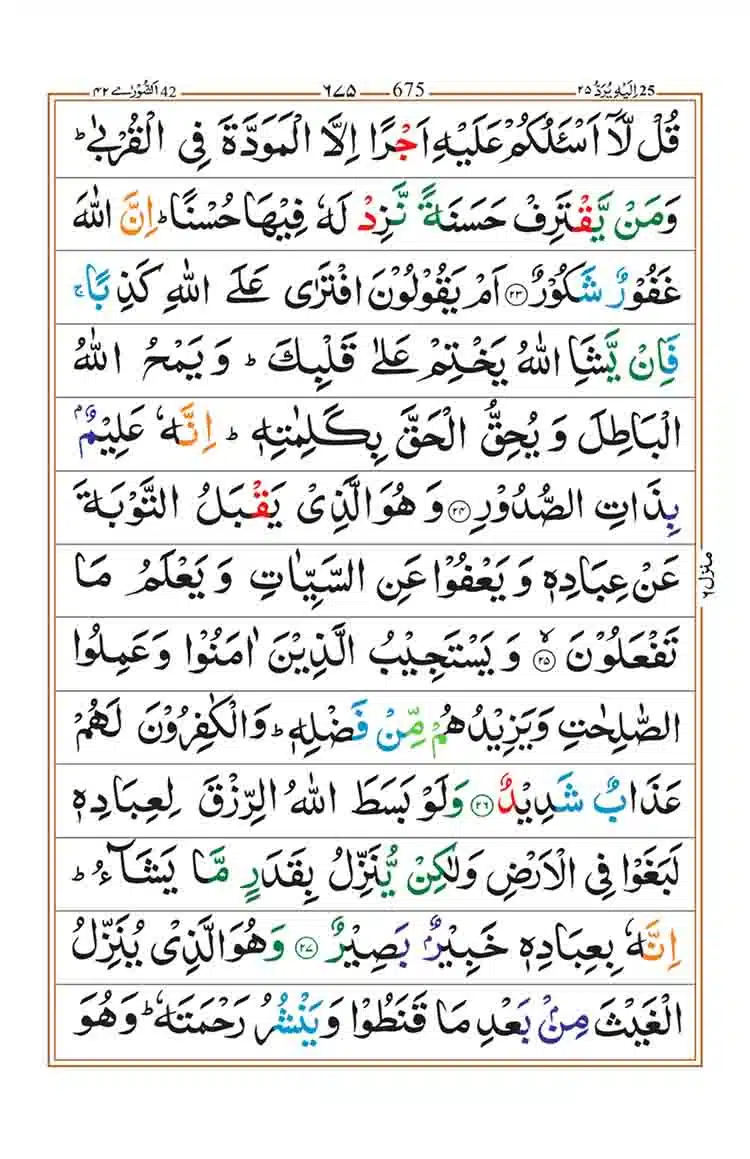 42 اَلشُّوْرٰے ۴۲ ٦٧۵ 675 25 اِلَیْهِ یُرَدُّ ۲۵
قُلْ لَّاۤ اَسْئَلُكُمْ عَلَیْهِ اَجْرًا اِلَّا الْمَوَدَّةَ فِی الْقُرْبٰیؕ
وَمَنْ یَّقْتَرِفْ حَسَنَةً نَّزِدْ لَهٗ فِیْهَا حُسْنًاؕ اِنَّ اللّٰهَ
غَفُوْرٌ شَكُوْرٌ ۲۳ اَمْ یَقُوْلُوْنَ افْتَرٰی عَلَی اللّٰهِ كَذِبًاۚ
فَاِنْ یَّشَاِ اللّٰهُ یَخْتِمْ عَلٰی قَلْبِكَؕ وَ یَمْحُ اللّٰهُ
الْبَاطِلَ وَ یُحِقُّ الْحَقَّ بِكَلِمٰتِهٖؕ اِنَّهٗ عَلِیْمٌۢ
بِذَاتِ الصُّدُوْرِ ۲۴ وَ هُوَ الَّذِیْ یَقْبَلُ التَّوْبَةَ
عَنْ عِبَادِهٖ وَ یَعْفُوْا عَنِ السَّیِّاٰتِ وَ یَعْلَمُ مَا
تَفْعَلُوْنَۙ ۲۵ وَ یَسْتَجِیْبُ الَّذِیْنَ اٰمَنُوْا وَ عَمِلُوا
الصّٰلِحٰتِ وَ یَزِیْدُهُمْ مِّنْ فَضْلِهٖؕ وَالْكٰفِرُوْنَ لَهُمْ
عَذَابٌ شَدِیْدٌ ۲۶ وَلَوْ بَسَطَ اللّٰهُ الرِّزْقَ لِعِبَادِهٖ
لَبَغَوْا فِی الْاَرْضِ وَلٰكِنْ یُّنَزِّلُ بِقَدَرٍ مَّا یَشَآءُؕ
اِنَّهٗ بِعِبَادِهٖ خَبِیْرٌۢ بَصِیْرٌ ۲۷ وَهُوَ الَّذِیْ یُنَزِّلُ
الْغَیْثَ مِنْۢ بَعْدِ مَا قَنَطُوْا وَیَنْشُرُ رَحْمَتَهٗؕ وَهُوَ
منزل ٦